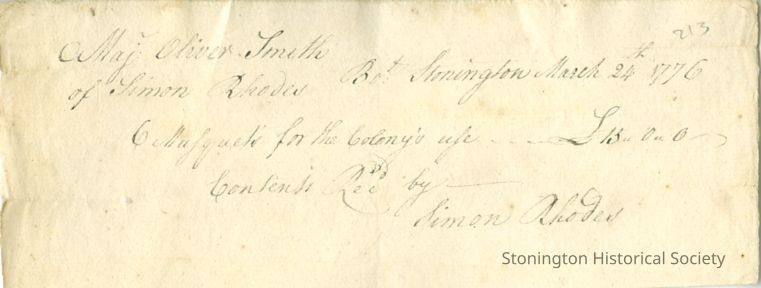 213
Maj: Oliver Smith
Bot. Stonington March 24th 1776
of Simon Rhodes
6 Musquets for the Colony's use - - £ 15 " 0 " 0
Contents Recd by
Simon Rhodes
Stonington Historical Society